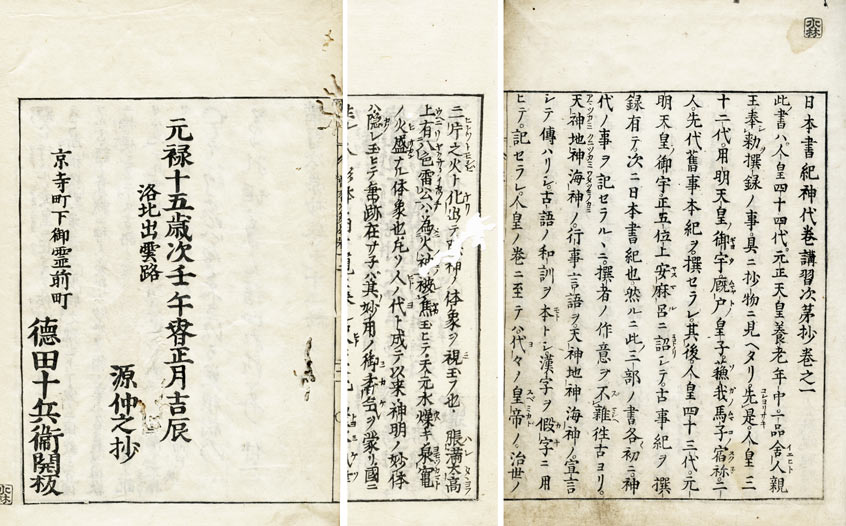 日本書紀神代巻講習次第抄巻之一
此書ハ人皇四十四代元正天皇養老年中一品舎人親
王奉勅撰録ノ事具ニ抄物ニ見ヘタリ先是人皇三
十二代用明天皇ノ御宇厩戸皇子蘓我馬子宿祢ニ
人先代舊事本紀ヲ撰セラレ其後人皇四十三代元
明天皇ノ御宇正五位上安麻呂ニ詔シテ古事紀ヲ撰
録有テ次ニ日本書紀也然ルニ此三部ノ書各初ニ神
代ノ事ヲ記セラルヽニ撰者ノ作意ヲ不雜往古ヨリ
天神地神海神ノ行事言語ヲ天神地神海神ノ宣言
シテ傳ハリシ古語ノ和訓ヲ本トシ漢字ヲ假字ニ用
ヒテ記セラレ人皇ノ巻ニ至テハ代々ノ皇帝ノ治世ノ
二片之火ト化出テ神ノ体象ヲ視玉フ也脹満太高
上有八色雷公ハ為火神被焦玉ヒテ天元水爆キ泉竃
ノ火盛ナル体象也凡ソ人ノ代ト成テ以来神明ノ妙体
ハ隠レ玉ヒテ無跡在其妙用ノ御ヲ蒙リ國ニ
元禄十五歳次壬午春正月吉辰
洛北出雲路
源仲之抄
京寺町下御霊前町
德田十兵衞開板